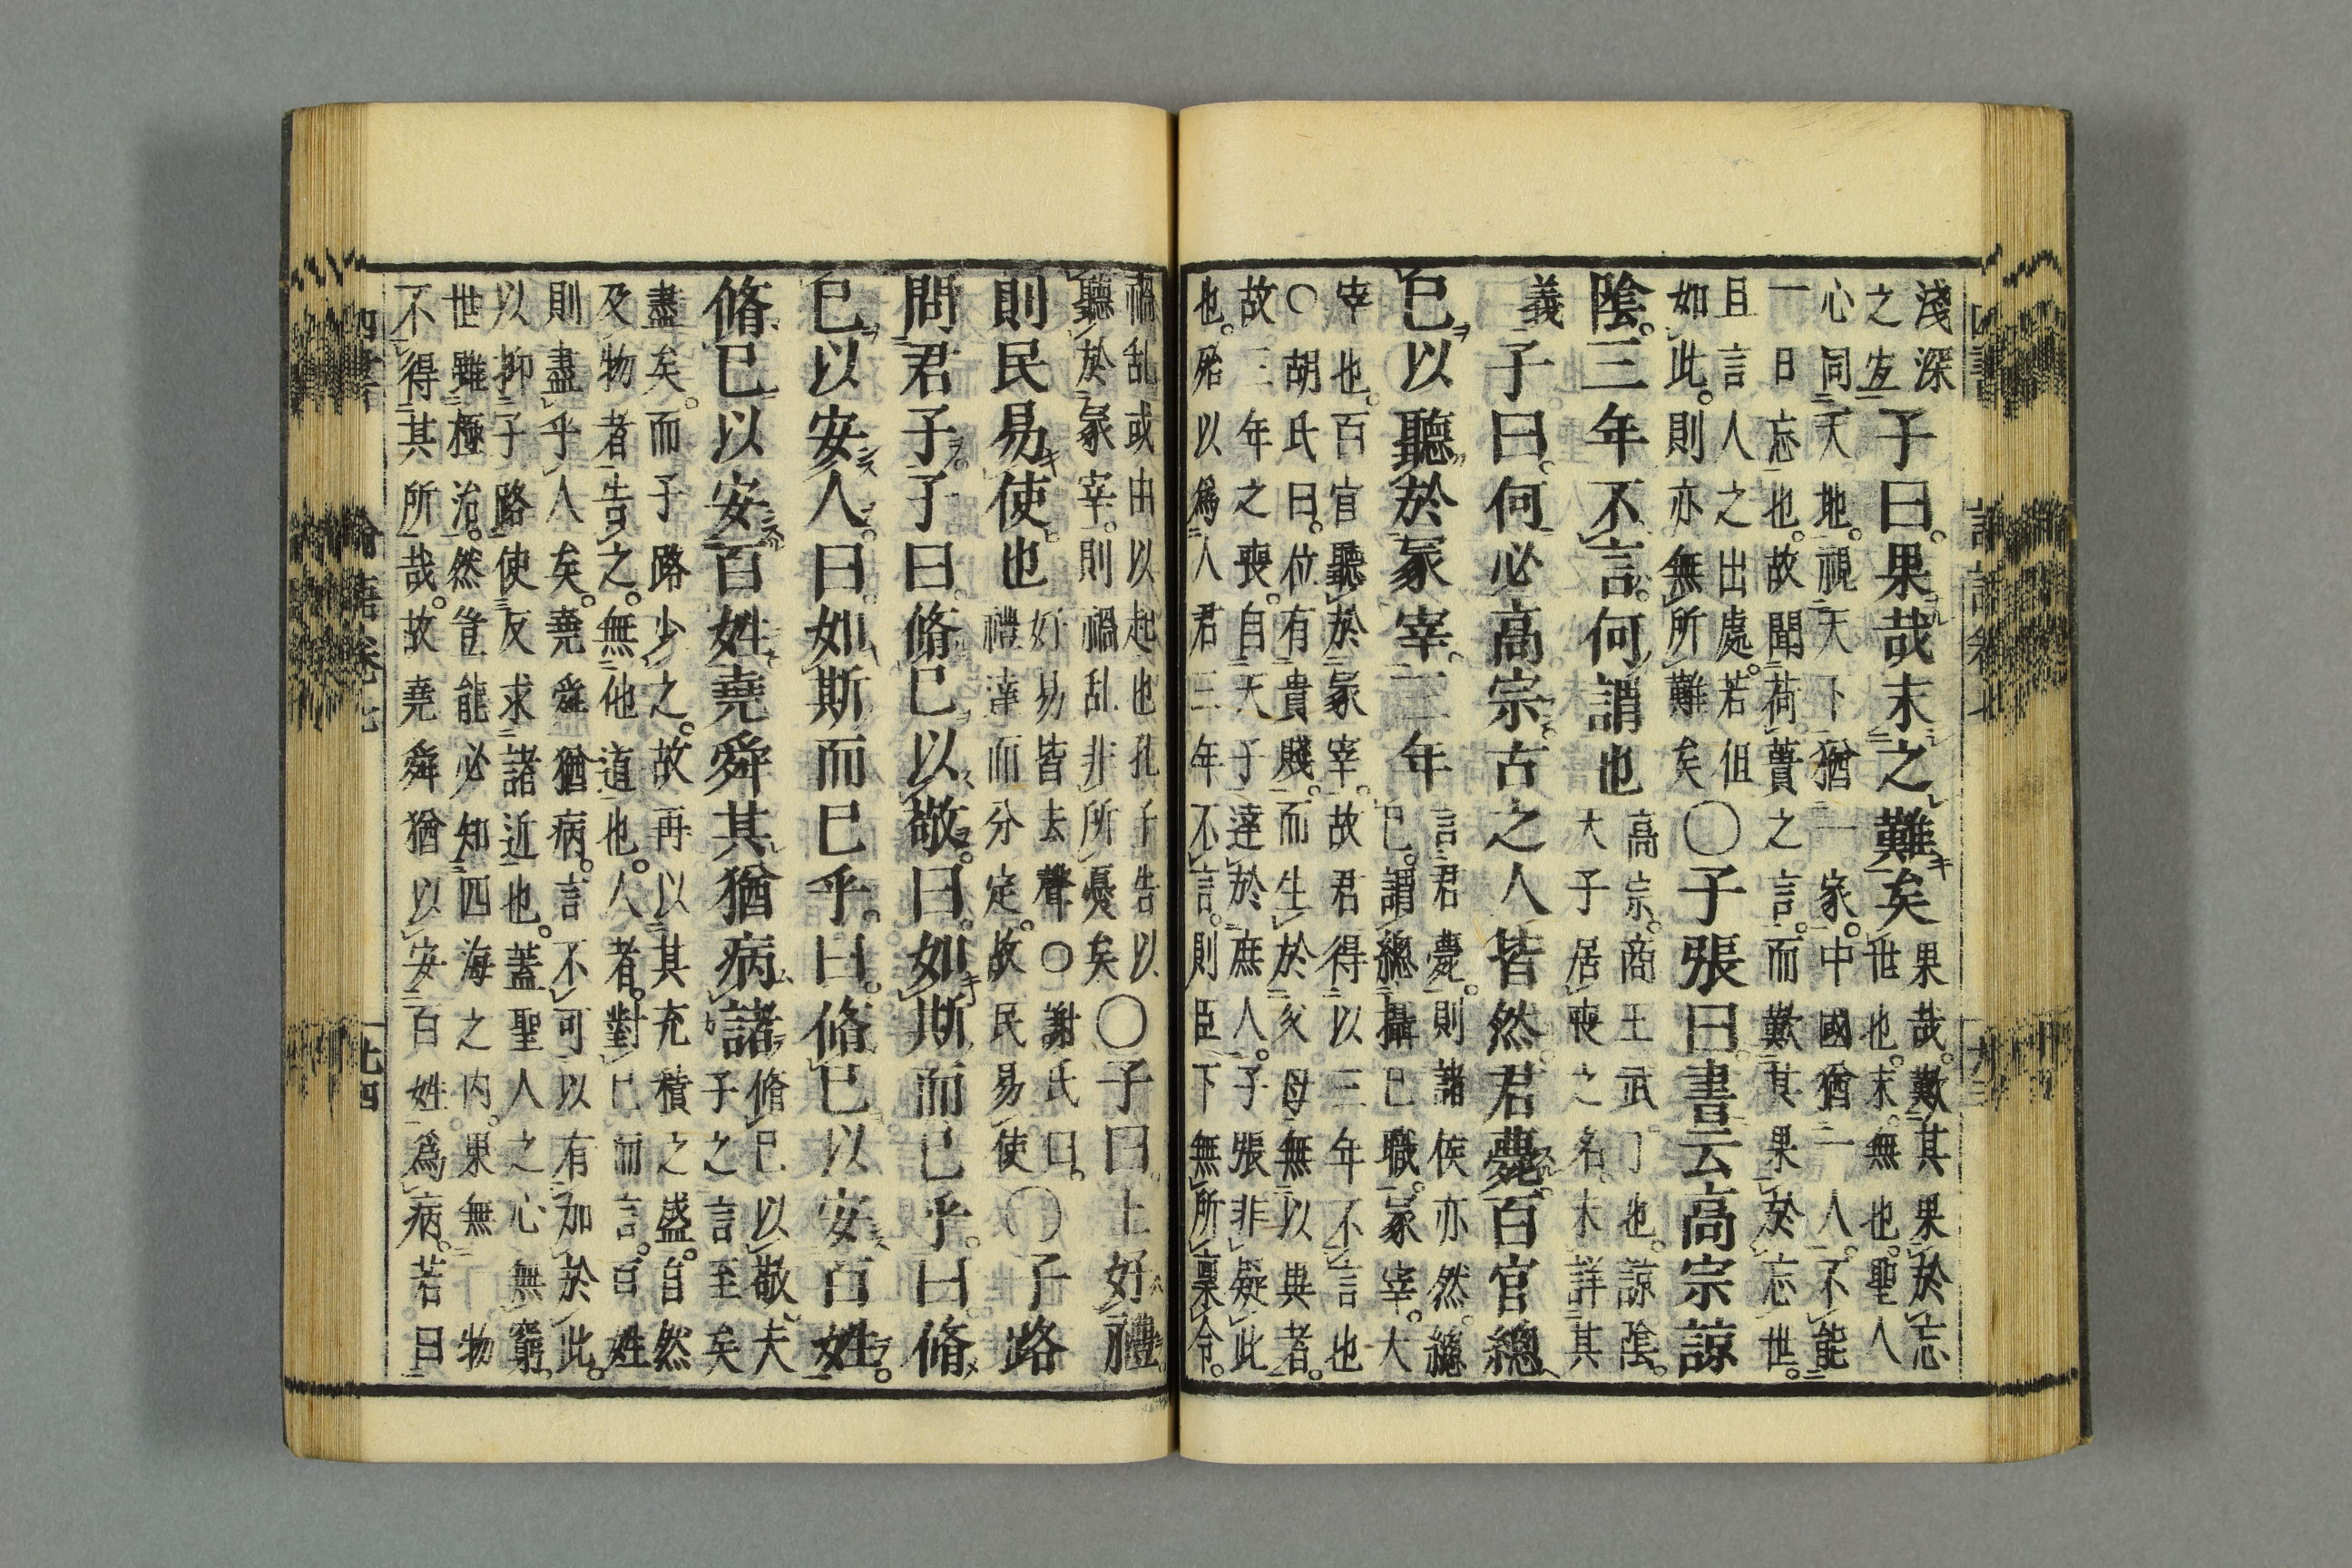 淺深
之宜
子曰。果哉末之難矣
果哉。歎其果於忘
世也。末。無也。聖人
心同天地。視天下猶一家。中國猶一人。不能
一日忘也。故聞荷蕢之言。而歎其果於忘世。
且言人之出處。若但
如此。則亦無所難矣
○子張曰書云高宗諒
陰。三年不言。何謂也
高宗。商王武丁也。諒陰。
天子居喪之名。未詳其
義
子曰。何必高宗。古之人皆然君薨。百官總
已以聽於冢宰。三年
言君薨。則諸侯亦然。總
已。謂總攝已職。冢宰。大
宰也。百官聽於冢宰。故君得以三年不言也
○胡氏曰。位有貴賤。而生於父母無以異者。
故三年之喪。自天子達於庶人。子張非疑此
也。殆以爲人君三年不言。則臣下無所稟令。
禍乱或由以起也孔子告以
聽於冢宰。則禍乱非所憂矣
○子曰上好禮
則民易使也
好易皆去聲○謝氏曰。
禮達而分定。故民易使
○子路
問君子子曰脩已以敬。曰。如斯而已乎。曰脩
已以安人。曰如斯而已乎。曰。脩已以安百姓。
脩已以安百姓堯舜其猶病諸
脩已以敬夫
子之言至矣
盡矣。而子路少之。故再以其充積之盛。自然
及物者告之。無他道也。人者。對已而言。百姓
則盡乎人矣。堯舜猶病。言不可以有加於此。
以抑子路使反求諸近也。蓋聖人之心無窮。
世雖極治。然豈能必知四海之内。果無一物
不得其所哉。故堯舜猶以安百姓爲病。若曰
四書 論語卷七 七四